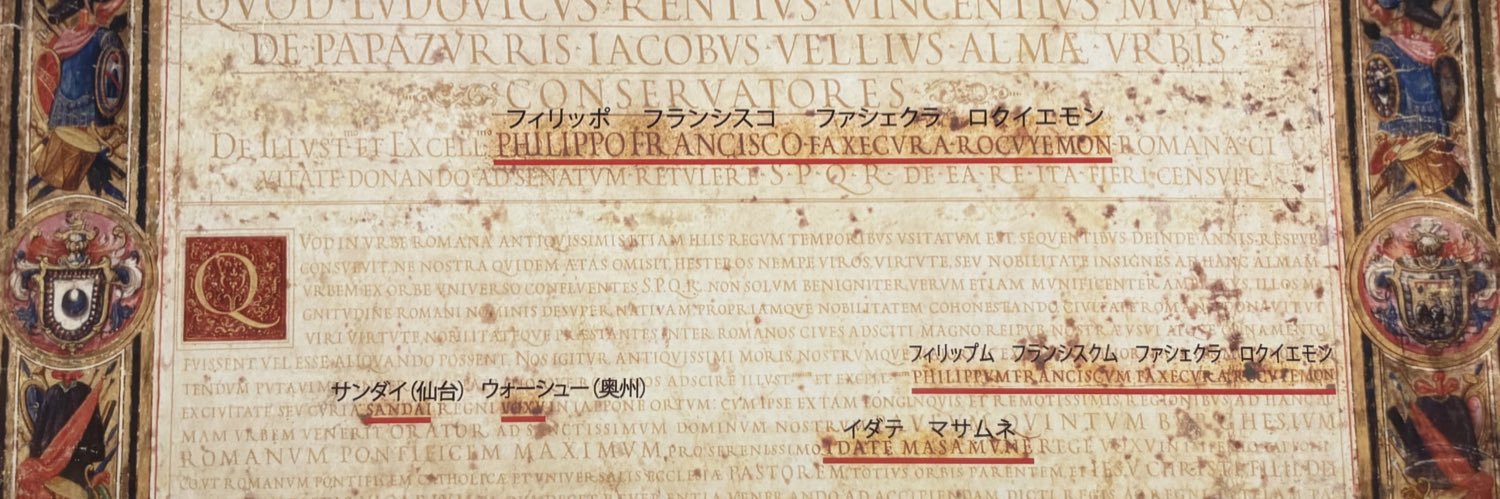 QVOD·LVDOVICVS·RENTIVS·VINCENTIVS·MVTVS
DE·PAPAZVRRIS·IACOBVS·VELLIVS·ALMÆ·VRBIS
CONSERVATORES
フィリッポ フランシスコ ファシェクラ ロクイエモン
DE ILLVST^mo ET EXCELL^mo PHILIPPO FRANCISCO·FAXECVRA·ROCVYEMON·ROMANA CI
VITATE·DONANDO·AD SENATVM·RETVLERE·S·P·Q·R·DE·EA·RE·ITA·FIERI·CENSVIT
QVOD IN VRBE ROMANA ANTIQVISSIMIS ETIAM ILLIS REGVM TEMPORIBVS VSITATVM EST, SEQVENTIBVS DEINDE ANNIS RESPVB
CONSVEVIT, NE NOSTRA QVIDEM ÆTAS OMISIT, HESTEROS NEMPE VIROS, VIRTVTE, SEV NOBILITATE INSIGNES AD HANC ALMAM
VRBEM EX ORBE VNIVERSO CONFLVENTES S.P.Q.R. NON SOLVM BENIGNITER VERVM ETIAM MVNIFICENTER ILLOS
GNITVDINE ROMANI NOMINIS DESVPER NATIVAM, PROPRIAMQVE NOBILITATEM COHONESTANDO CIVITATE ROMANA DONAVIT
VIRI VIRTVTE NOBILITATEQVE PRÆSTANTES INTER ROMANOS CIVES ADSCITI MAGNO REIPVB NOSTRÆ VSVI ATQVE ORNAMENTO
フィリップム フランシスクム ファシェクラ ロクイエモン
FVISSENT VEL ESSE ALIQVANDO POSSENT. NOS IGITVR ANTIQVISSIMI MORIS NOSTRVMQVE
TENDVM PVTAVIM ADSCIRE ILLVST ET EXCELL PHILIPPVM FRANCISCVM FAXECVRA ROCVYEMON
サンダイ(仙台) ウォーシュー(奥州)
EX CIVITATE SEV CVRIA SANDAI REGNI VOXV IN IAPPONE ORTVM: CVM IPSE EX TAM LONGINQVIS ET REMOTISSIMIS REGIONIBVS AD HANC
イダテ マサムネ
MAM VRBEM VENERIT ORATOR AD SANCTISSIMVM DOMINVM NOSTRVM QVINTVM BVRGHESIVM
ROMANVM PONTIFICEM MAXIMVM, PRO SERENISSIMO IDATE MASAMVNE REGE VOXV IN
CO, VT ROMANVM PONTIFICEM CATHOLICÆ ET VNIVERSALIS ECCLESIÆ PASTOREM TOTIVS ORBIS PARENTEM, ET IESV CHRISTI FILII DEI